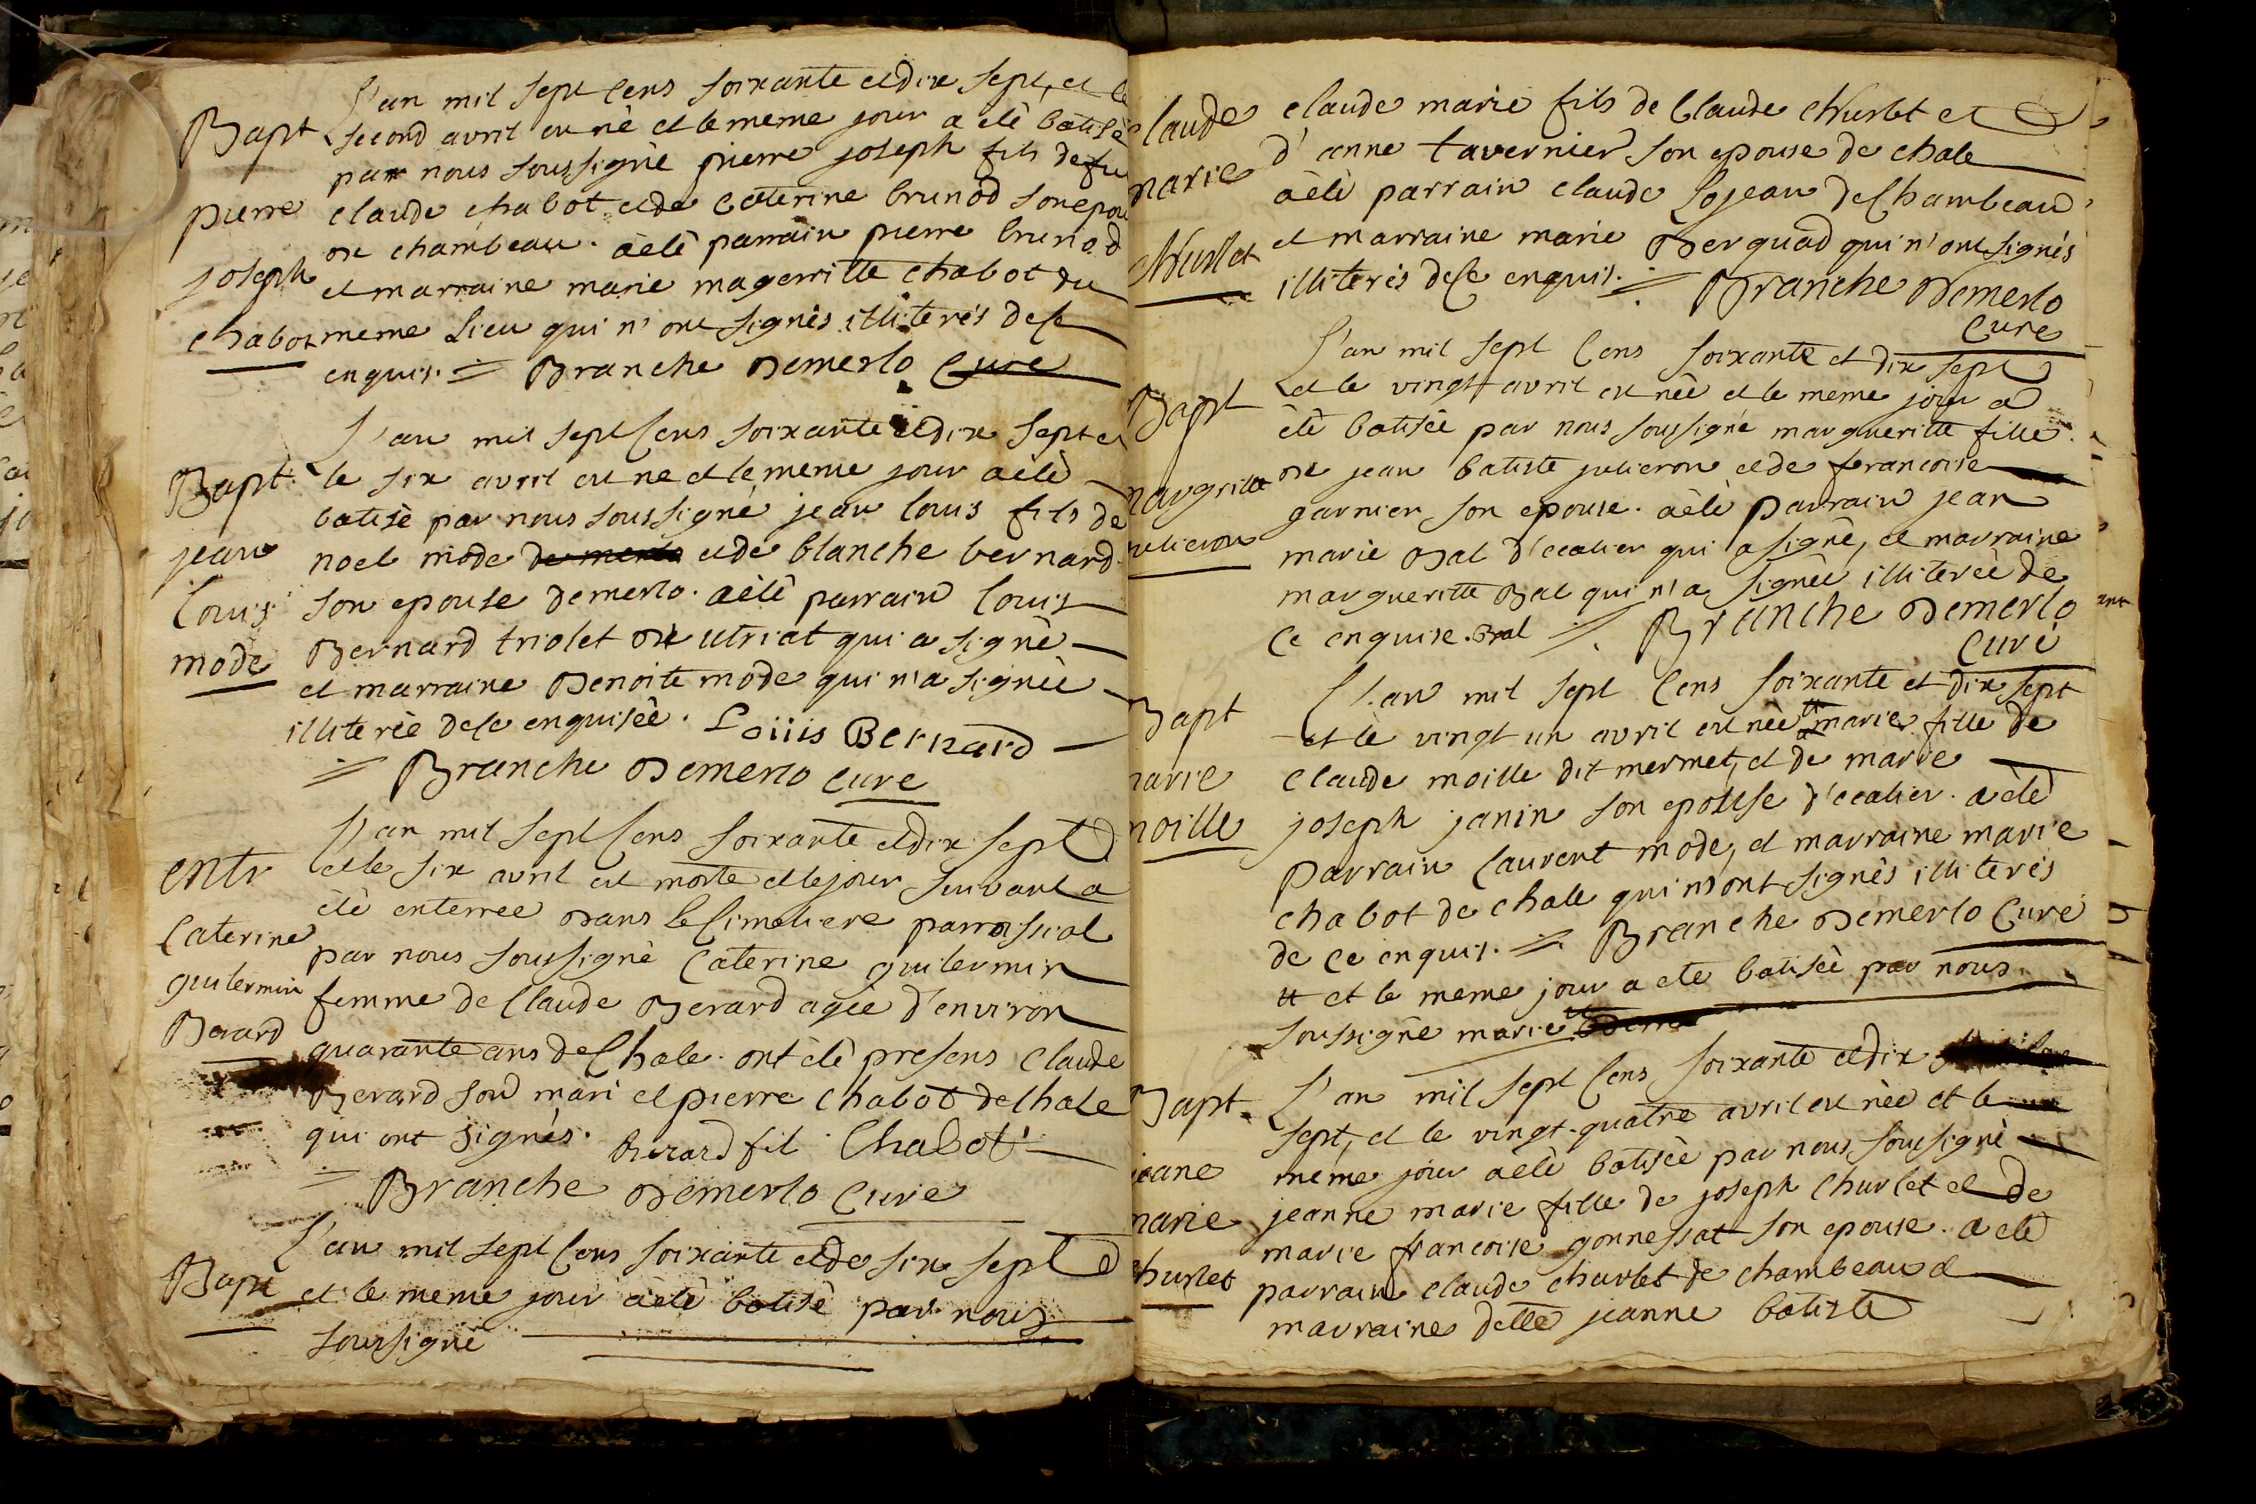 L'an mil sept cens soixante et dix sept, et le
Bapt second avril est né et le meme jour a èté batisè
par nous soussignè pierre joseph fils de feu
pierre claude chabot et de caterine brunod son epouse
de chambeau. a èté parrain pierre brunod
joseph et marraine marie magerritte chabot du
chabot meme lieu qui n'ont signès illiterés de ce
enquis. Branche Demerlo Cure
L'an mil sept cens soixante et dix sept et
Bapt. le six avril est ne et le meme jour a èté
batisè par nous soussigné jean louis fils de
jean noel mode et de blanche bernard
louis son epouse demerlo. a èté parrain louis
mode Bernard triolet de utriat qui a signè
et marraine Benoite mode qui n'a signèe
illiterèe de ce enquiseè. Loüis Bernard
Branche Demerlo cure
L'an mil sept cens soixante et dix sept
entr et le six avril est morte et le jour suivant a
èté enterrèe dans le cimetiere parroissial
Caterine par nous soussignè Caterine guilermin
guilermin femme de Claude Berard agèe d'environ
Berard quarante ans de Chale. ont èté presens Claude
Berard son mari et pierre chabot de chale
qui ont signés. Berard fil Chabot
Branche Demerlo cure
L'an mil sept cens soixante et de six sept
Bapt et le meme jour a èté batisé par nous
soussignè
Claude claude marie fils de Claude Churlet et
marie d'anne tavernier son epouse de chale
a èté parrain claude Lojean de Chambeau
Churlet et marraine marie Berquad qui n'ont signés
illiterés de ce enquis. Branche Demerlo
Cure
L'an mil sept cens soixante et dix sept
Bapt et le vingt avril est nèe et le meme jour a
èté batisèe par nous soussigné margueritte fille
margritte de jean batiste julieron et de francoise
julieron garnier son epouse. a èté parrain jean
marie Bal d'ecalier qui a signé, et marraine
margueritte Bal qui n'a signèe illiterèe de
ce enquise. Bal Branche Demerlo
Curé
L'an mil sept cens soixante et dix sept
Bapt et le vingt un avril est nèe tt marie fille de
marie claude moille dit mermet, et de marie
moille joseph janin son epouse d'ecalier. a èté
parrain laurent mode, et marraine marie
chabot de chale qui n'ont signés illiterés
de ce enquis. Branche Demerlo Curé
tt et le meme jour a ete batisèe par nous
soussignè marie
L'an mil sept cens soixante et dix
Bapt. sept, et le vingt-quatre avril est nèe et le
jeane même jour a èté batisèe par nous sousignè
marie jeanne marie fille de joseph Churlet et de
marie francoise gonnessat son epouse. a èté
Churlet parrain claude churlet de chambeau et
marraine delle jeanne batiste